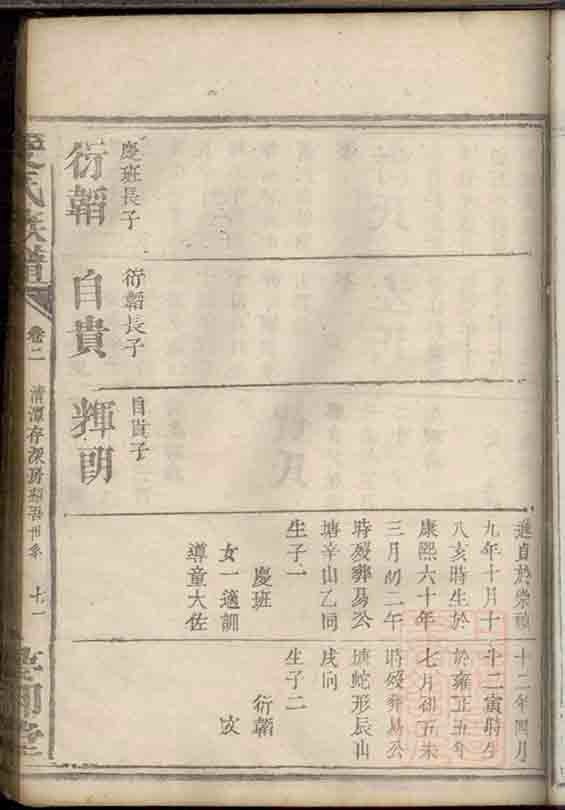 慶班長子
衍韜
衍韜長子
自貴
自貴子
輝
貞於崇禎
九年十月十
八亥時生於
康熙六十年
三月初二午
時歿葬易公
塘辛山乙向
生子一
慶班
女一適訓
導童大佐
十二年四月
十二寅時生
於雍正五年
七月初五未
時歿葬易公
塘蛇形辰山
戌向
生子二
衍韜
次
氏族譜
卷二
清潭存深房 世系
十一